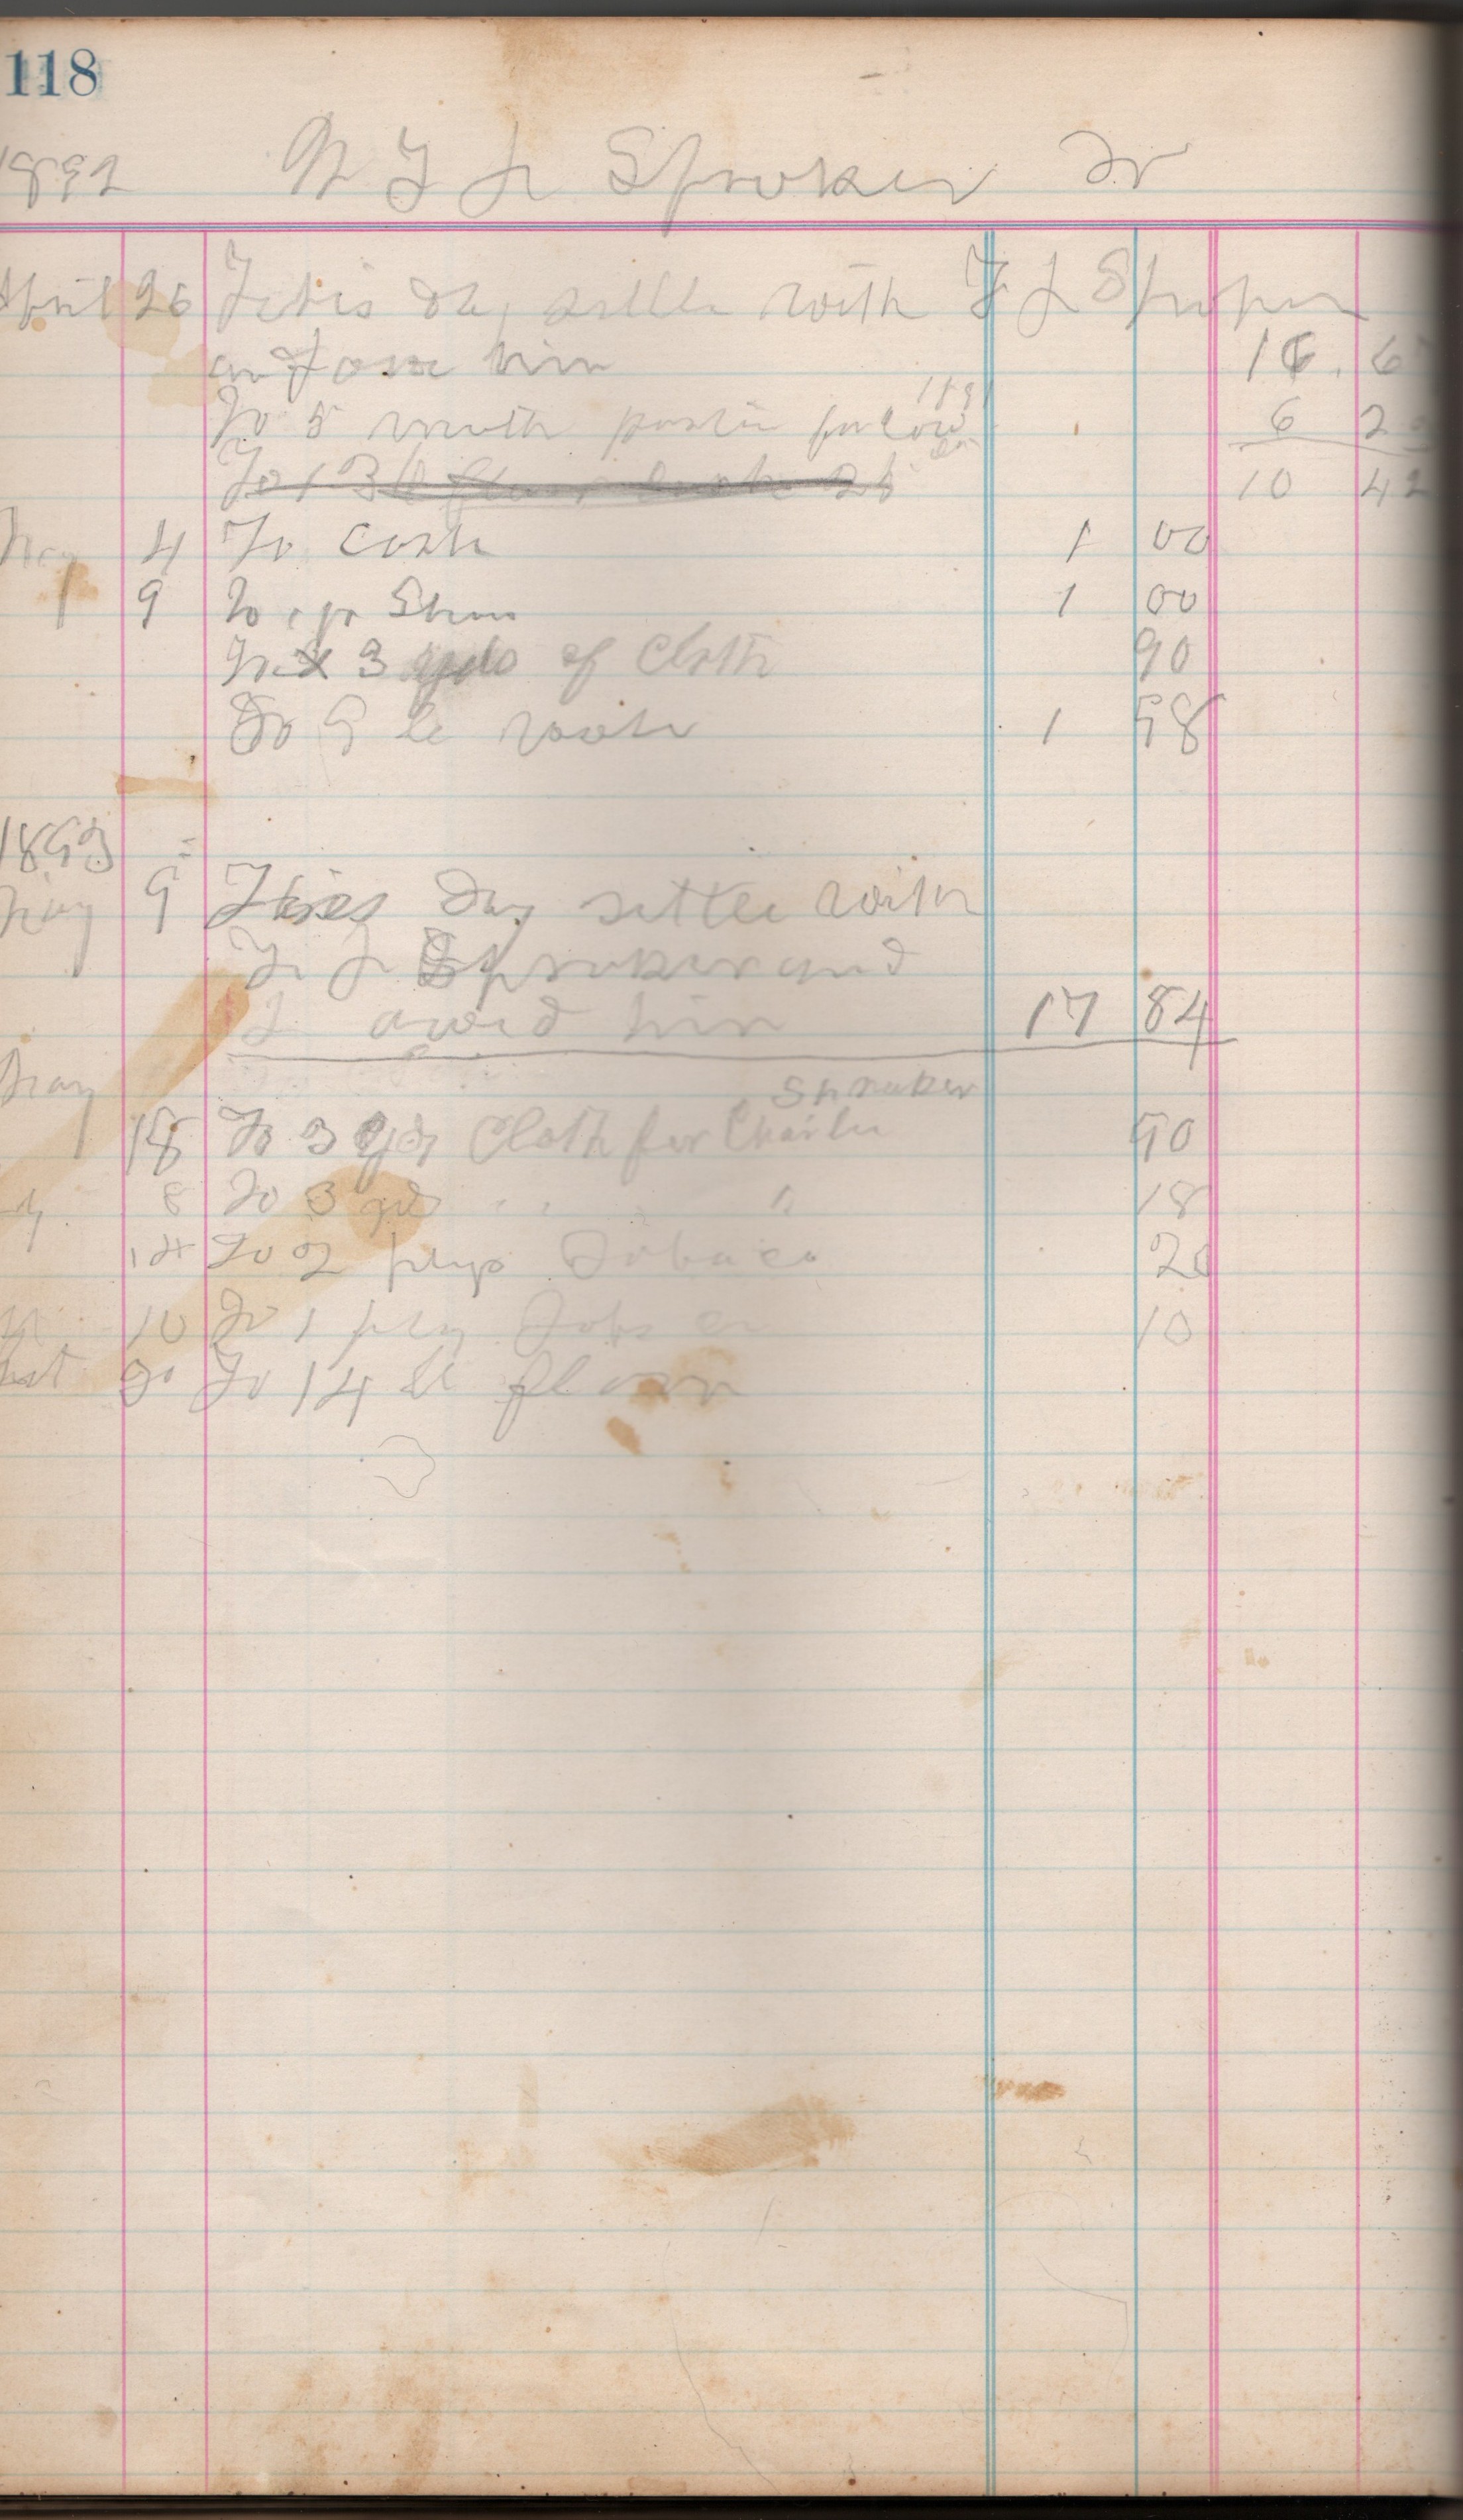 118
1892 Spraker Dr
April 26 This day settle with F L Spraker
and owe him 16. 6
1891
To 5 month pastur for cow 6 2
10 42
May 4 To Cash 1 00
9 To 1 pr Shoes 1 00
3 yds of Cloth 90
To 9 lb 1 98
1893
May 9 This day settle with
F L Spraker and
I owed him 17 84
May Spraker
18 To 3 yds Cloth for Charlie 90
8 To 3 yds " " " 18
14 To 2 plugs Tobaco 20
10 To 1 plug Tobaco 10
20 To 14 lb flour